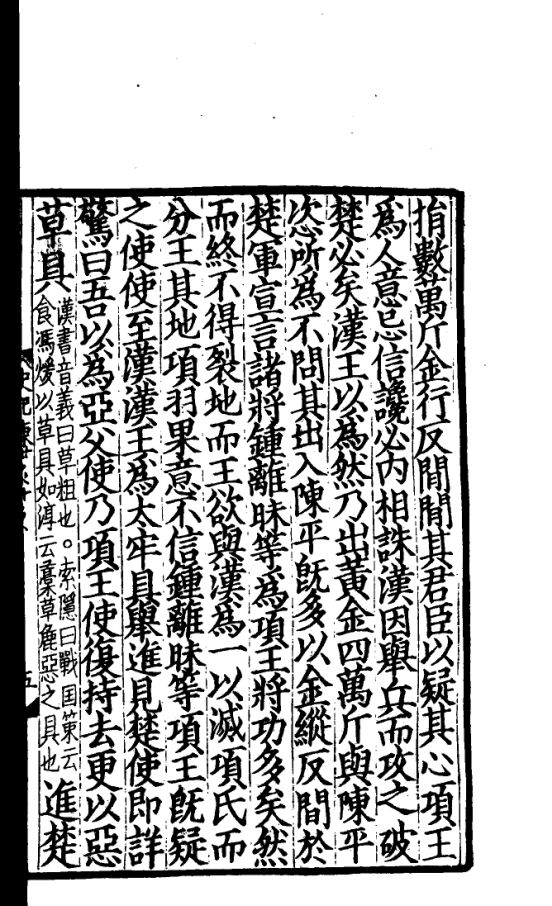 捐數萬斤金行反間間其君臣以疑其心項王
為人意忌信讒必內相誅漢因舉兵而攻之破
楚必矣漢王以為然乃出黃金四萬斤與陳平
恣所為不問其出入陳平既多以金縱反間於
楚軍宣言諸將鍾離昧等為項王將功多矣然
而終不得裂地而王欲與漢為一以滅項氏而
分王其地項羽果意不信鍾離昧等項王既疑
之使使至漢漢王為太牢具舉進見楚使即詳
驚曰吾以為亞父使乃項王使復持去更以惡
草具漢書音義曰草粗也。索隱曰戰国策云
食馮煖以草具如淳云藁草麁惡之具也進楚
五